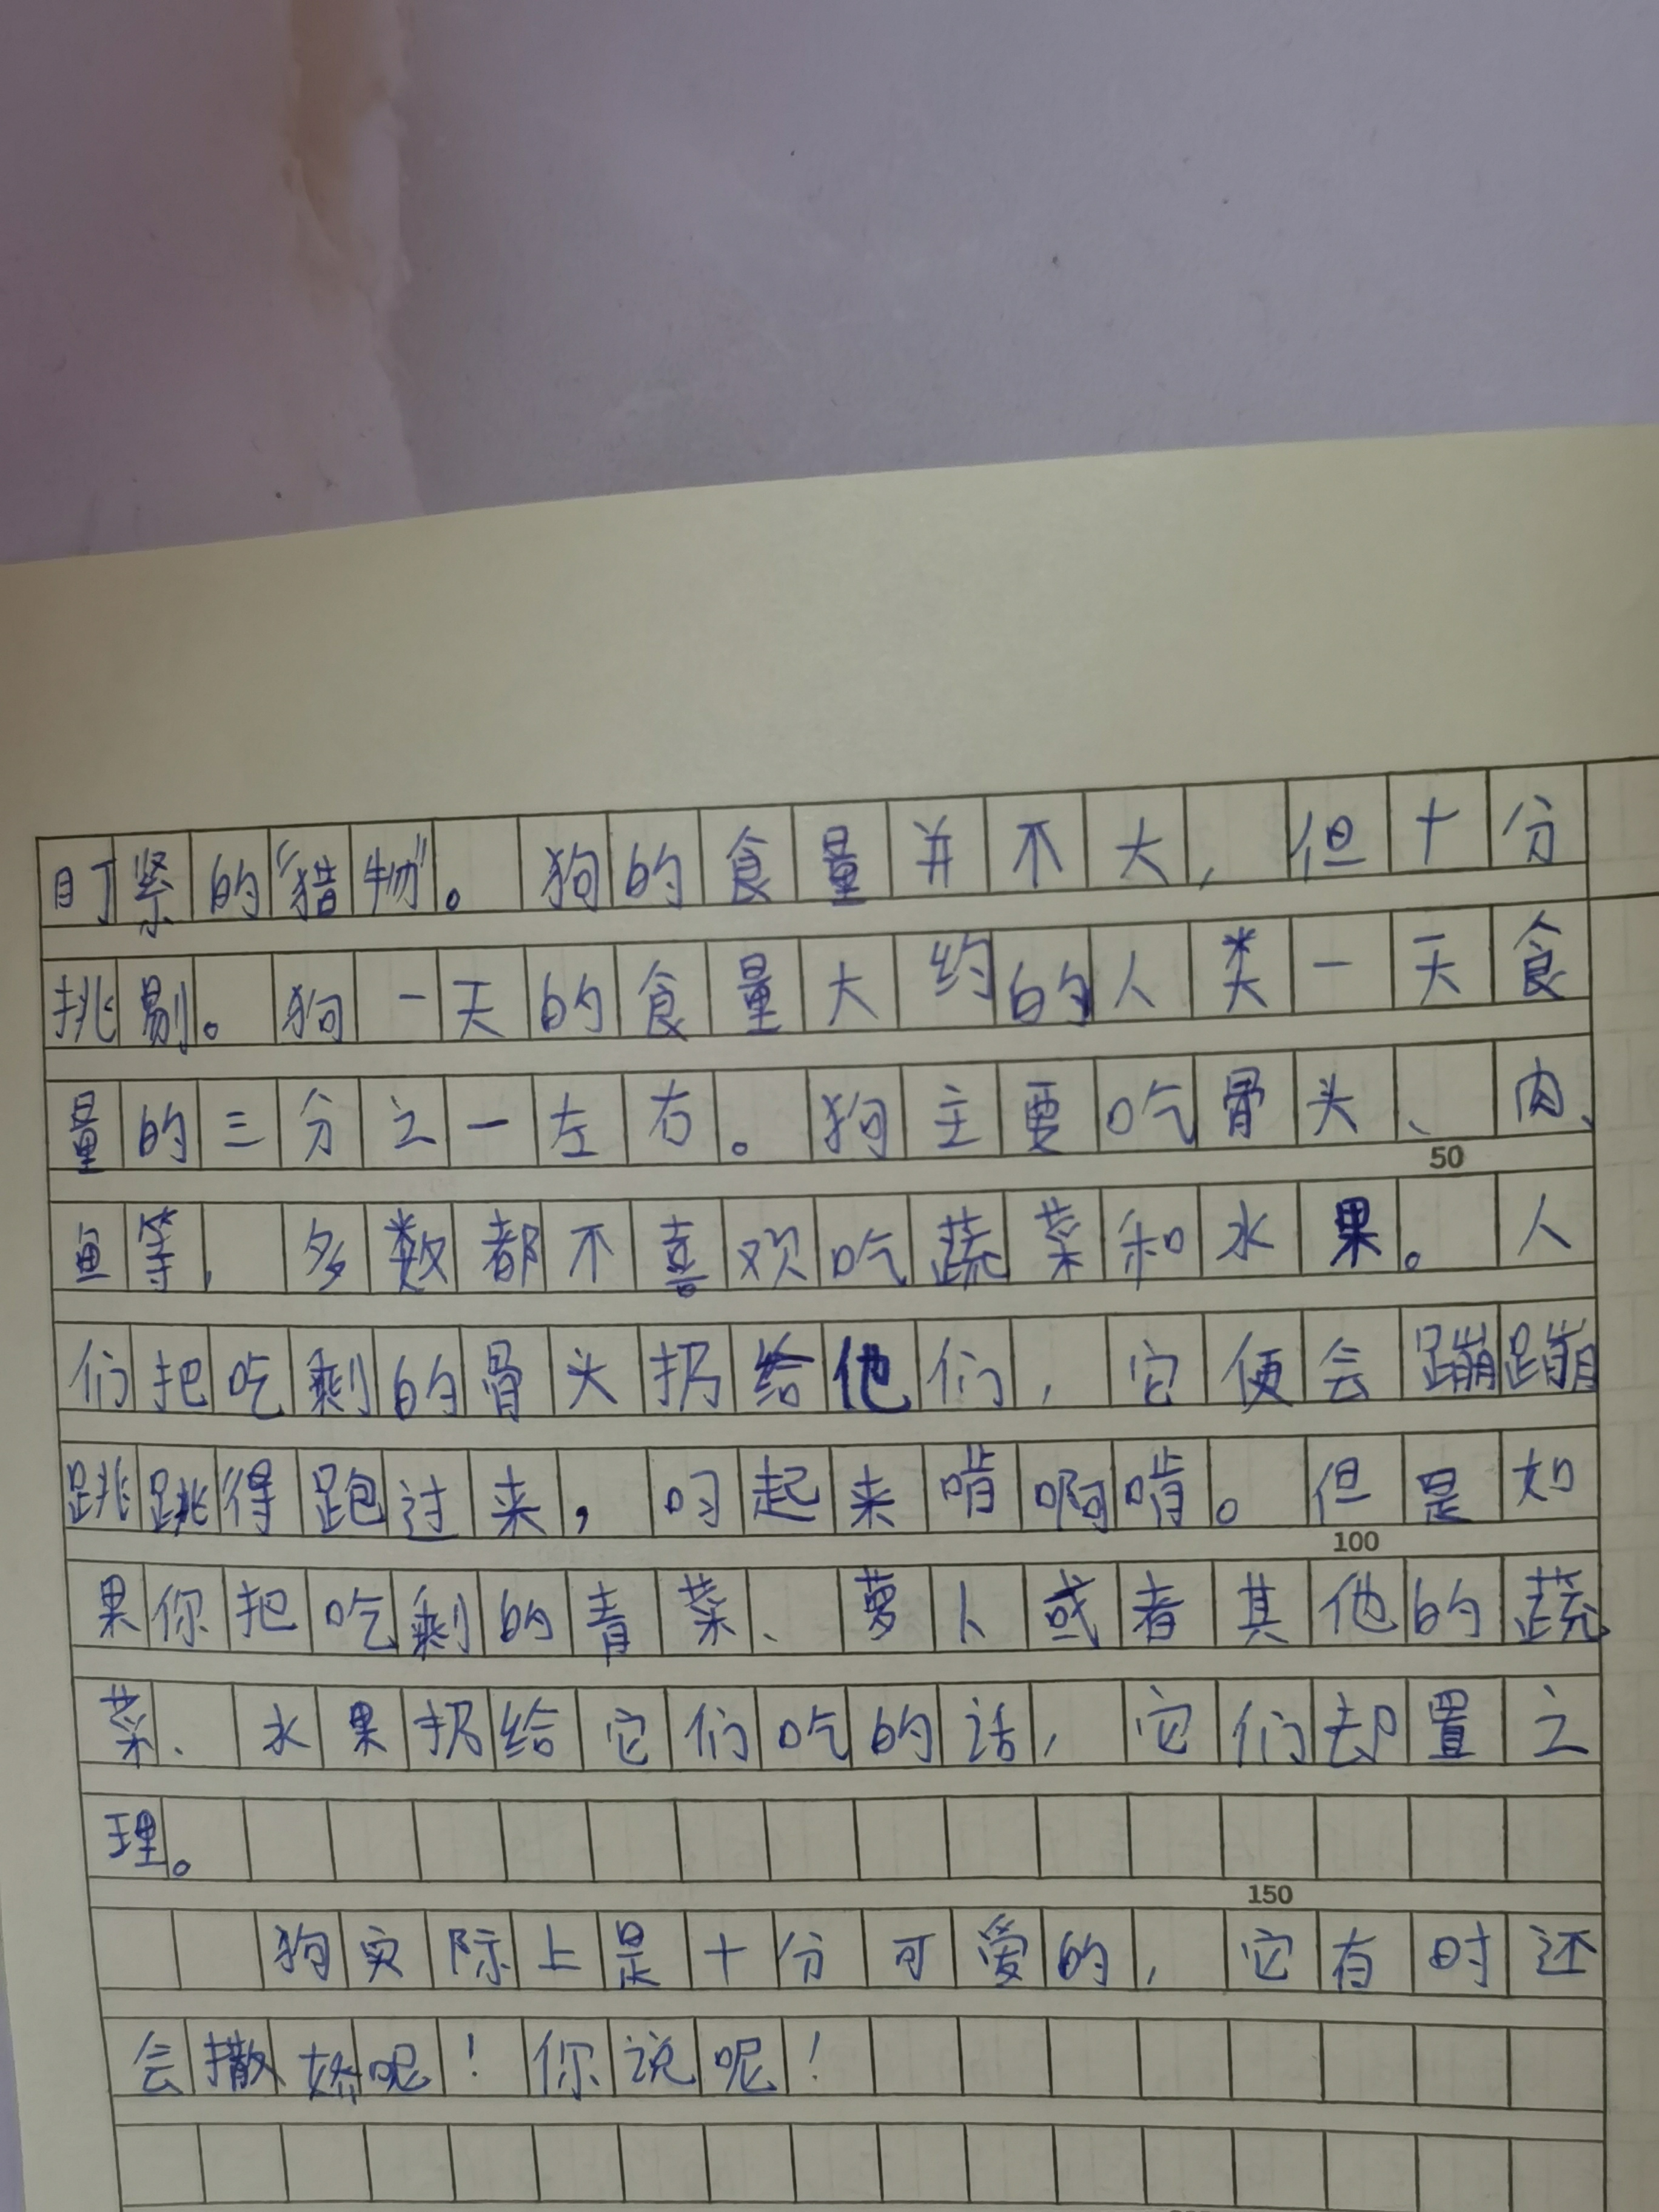 盯紧的“猎物”。狗的食量并不大，但十分
挑剔。狗一天的食量大约的人类一天食
量的三分之一左右。狗主要吃骨头、肉、
鱼等，多数都不喜欢吃蔬菜和水果。人
们把吃剩的骨头扔给他们，它便会蹦蹦
跳跳得跑过来，叼起来啃啊啃。但是如
果你把吃剩的青菜、萝卜或者其他的蔬
菜、水果扔给它们吃的话，它们却置之
理。
狗实际上是十分可爱的，它有时还
会撒娇呢！你说呢！
50
100
150